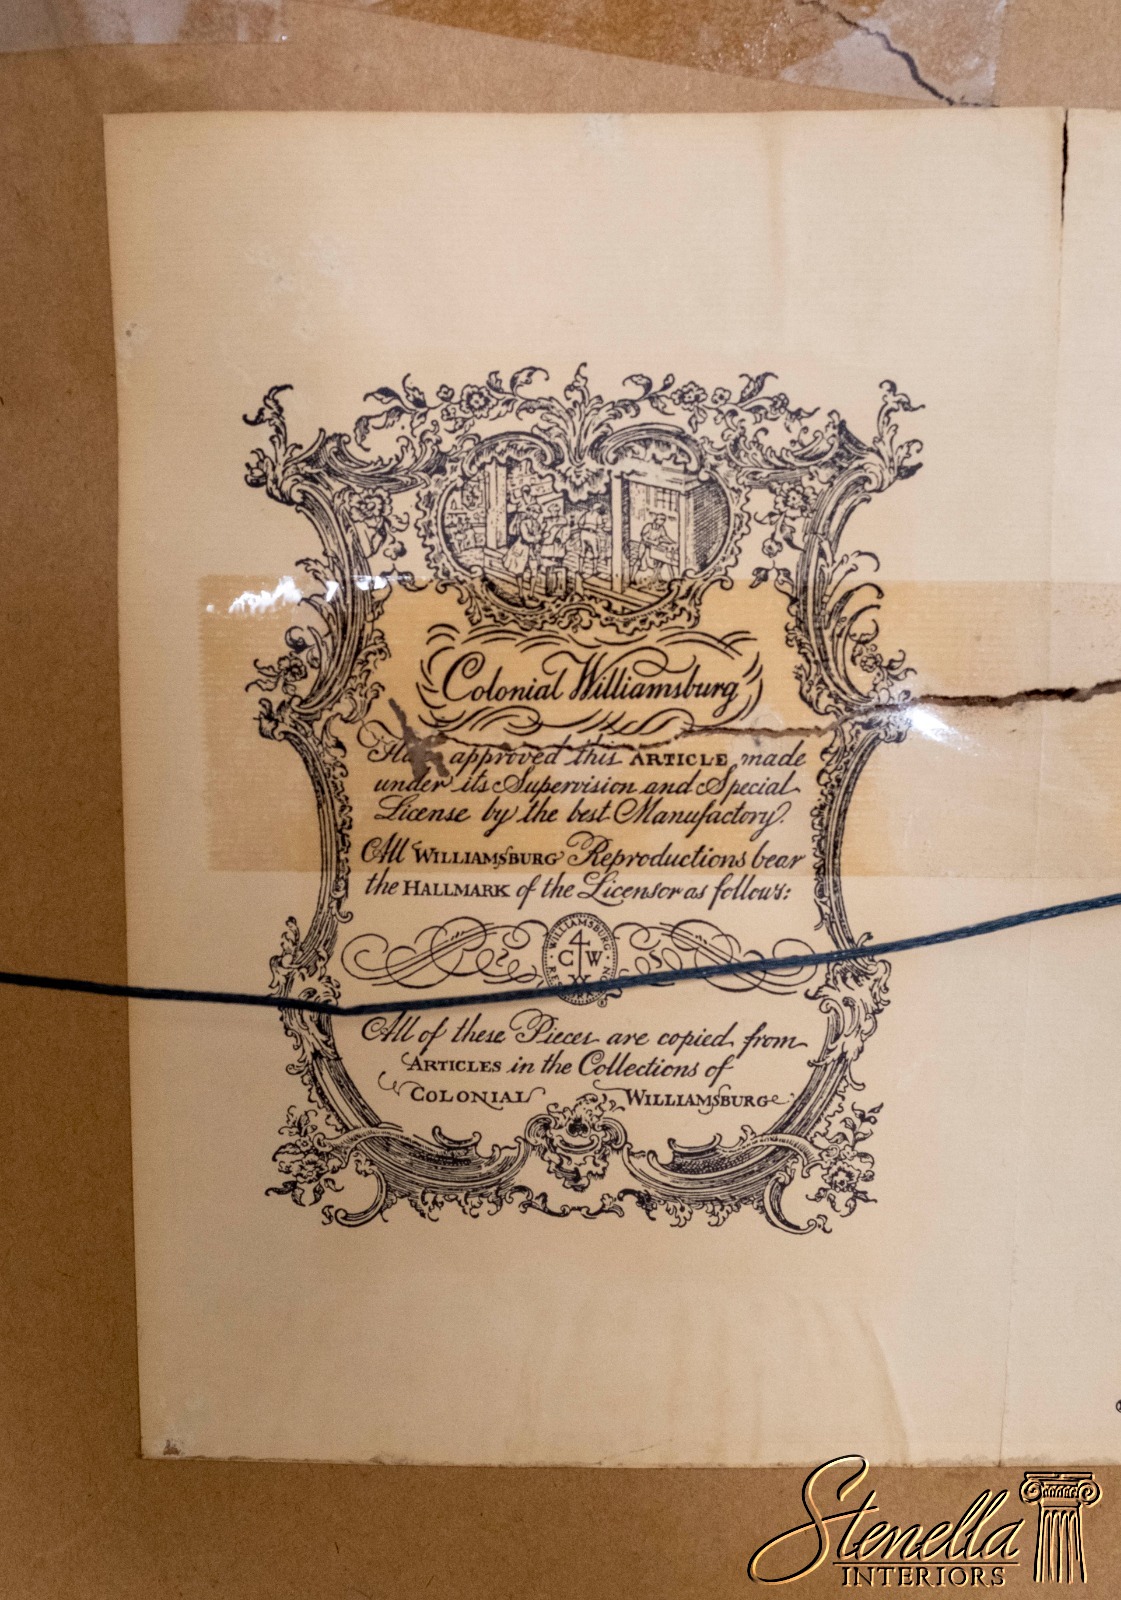 Colonial Williamsburg
Has approved this ARTICLE made
under its Supervision and Special
License by the best Manufactory.
All WILLIAMSBURG Reproductions bear
the HALLMARK of the Licensor as follows:
WILLIAMSBURG
C W
All of these Pieces are copied from
ARTICLES in the Collections of
COLONIAL WILLIAMSBURG.
Stenella
INTERIORS